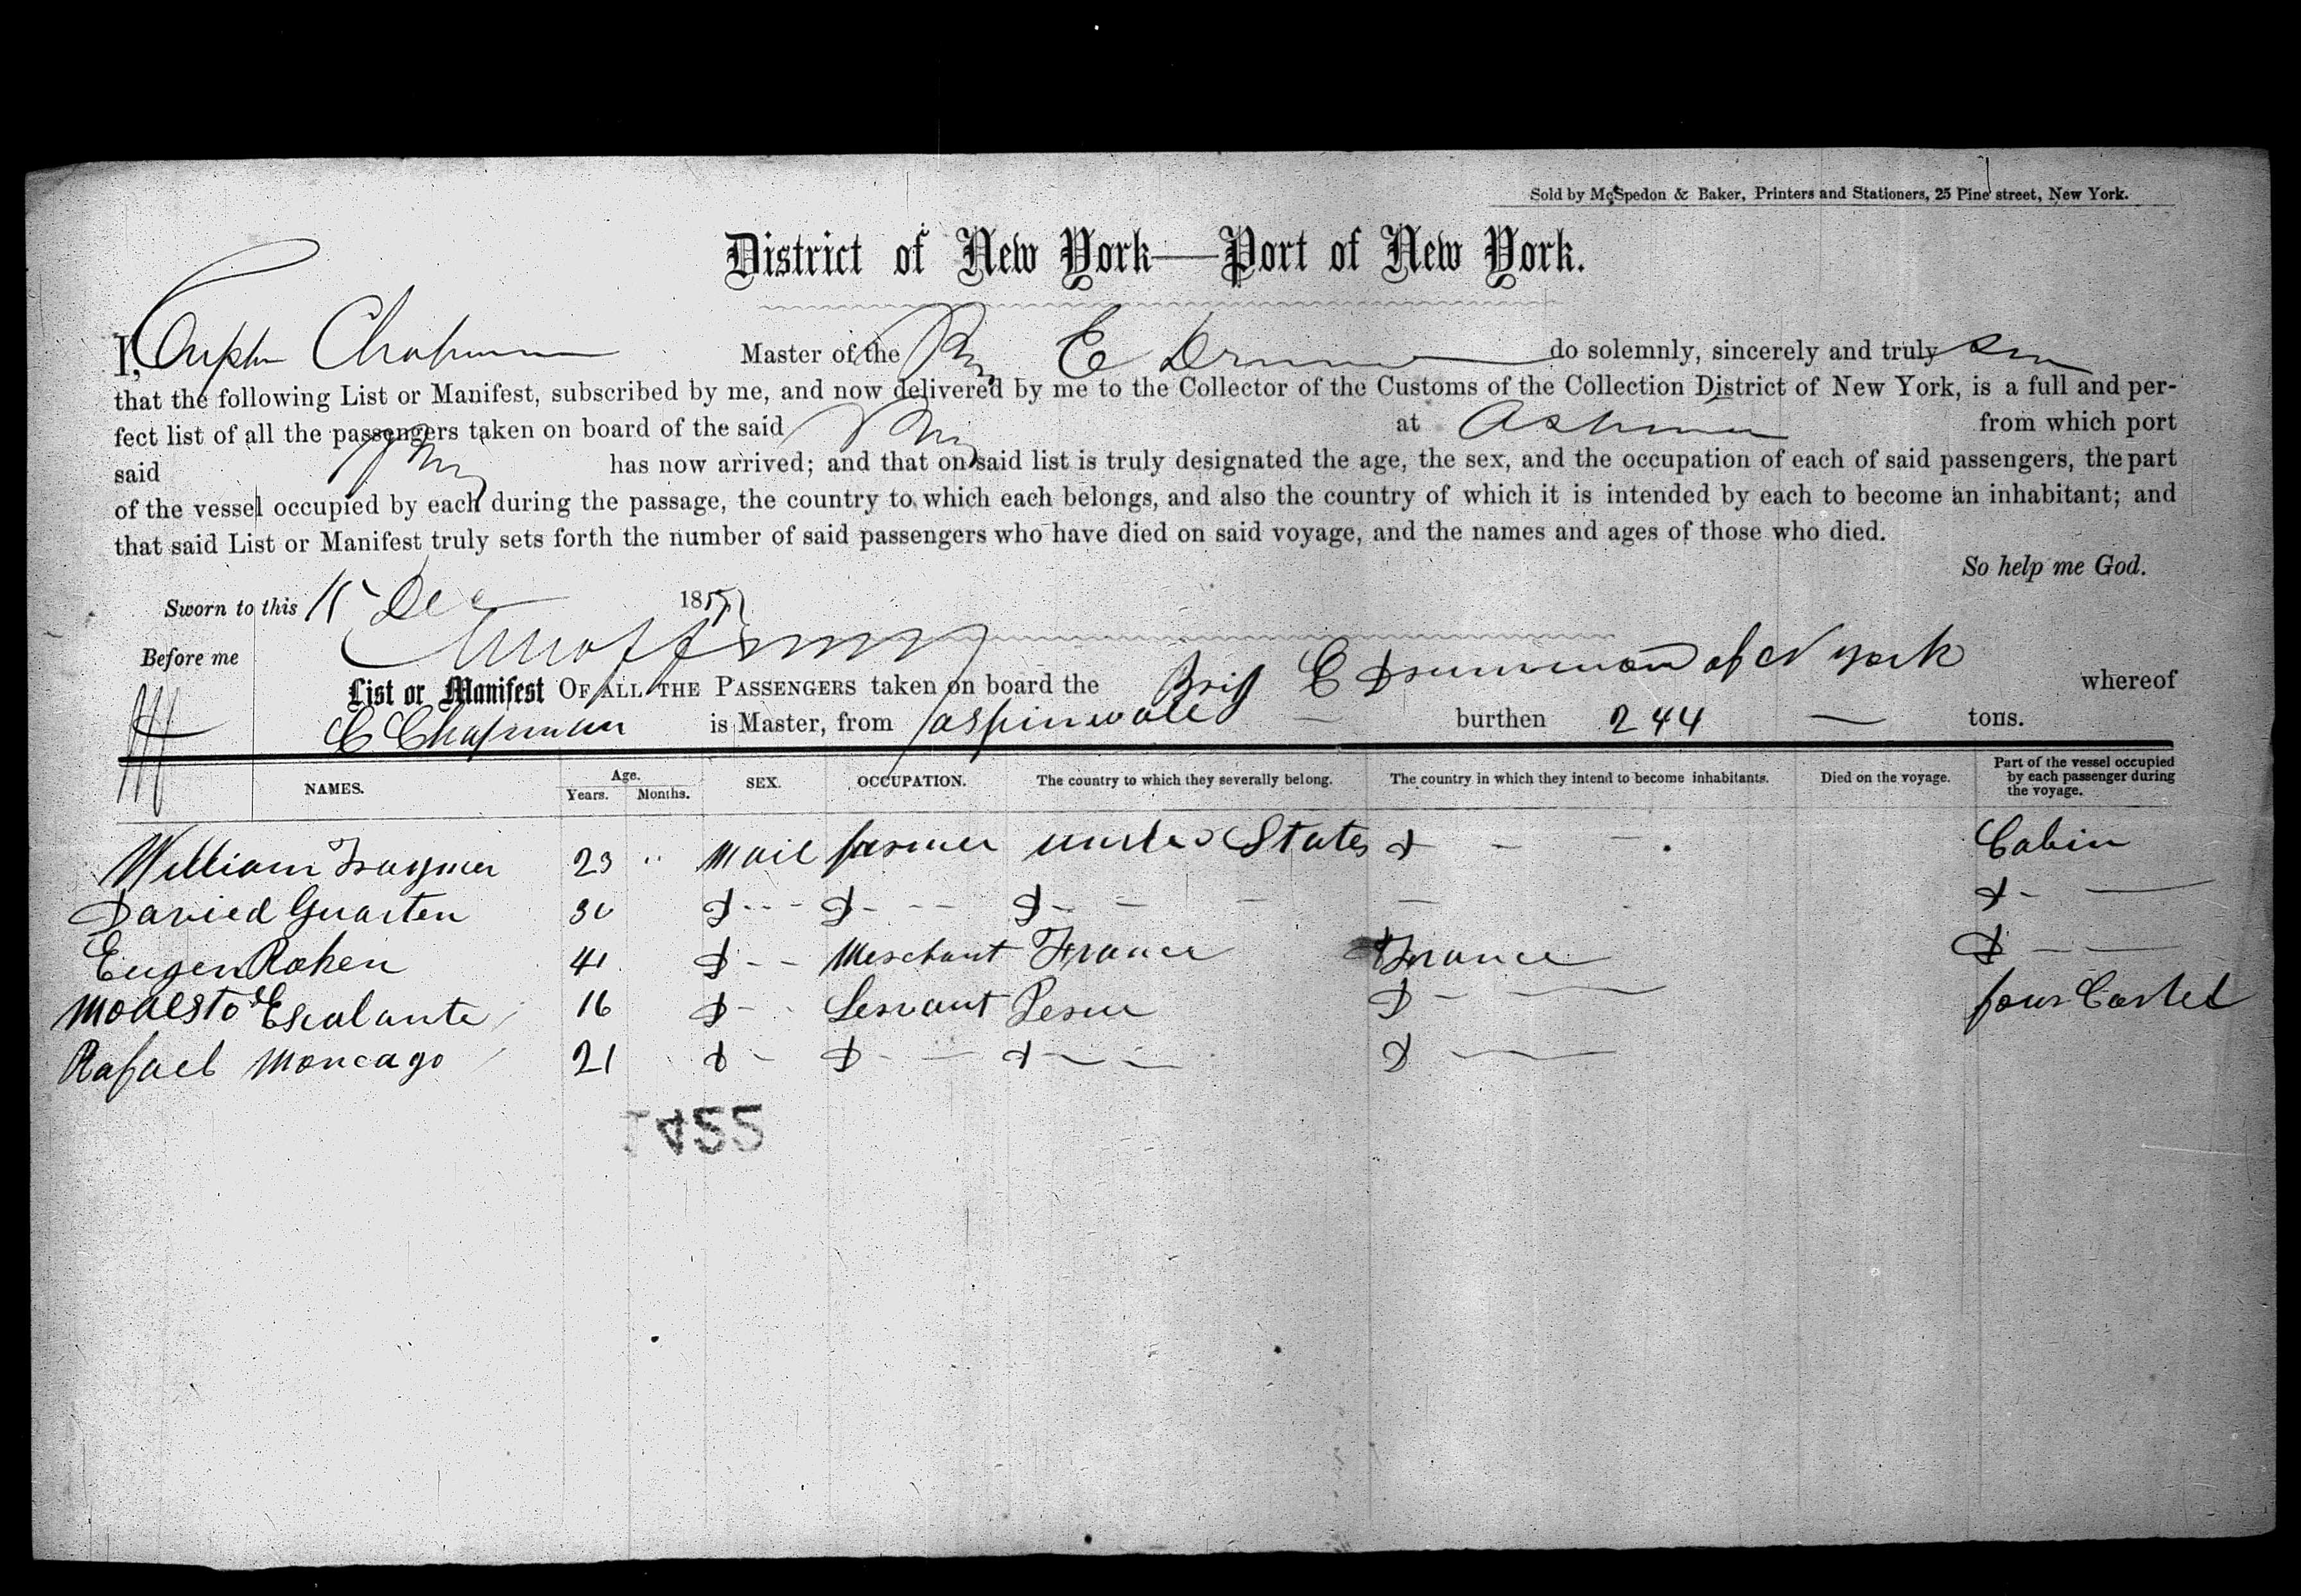 Sold by McSpedon & Baker, Printers and Stationers, 25 Pine street, New York.
District of New York—Port of New York.
I, Chapman Master of the Brig E Drummond do solemnly, sincerely and truly
that the following List or Manifest, subscribed by me, and now delivered by me to the Collector of the Customs of the Collection District of New York, is a full and per-
fect list of all the passengers taken on board of the said Brig at from which port
said Brig has now arrived; and that on said list is truly designated the age, the sex, and the occupation of each of said passengers, the part
of the vessel occupied by each during the passage, the country to which each belongs, and also the country of which it is intended by each to become an inhabitant; and
that said List or Manifest truly sets forth the number of said passengers who have died on said voyage, and the names and ages of those who died.
So help me God.
Sworn to this 15 Dec 1857
Before me
List or Manifest OF ALL THE PASSENGERS taken on board the Brig E Drummond of N york whereof
C Chapman is Master, from aspinwall — burthen 244 — tons.
NAMES. Age. Years. Months. SEX. OCCUPATION. The country to which they severally belong. The country in which they intend to become inhabitants. Died on the voyage. Part of the vessel occupied by each passenger during the voyage.
William 23 " Mail farmer United States D - - Cabin
Daried Guarten 30 D - - - D - - - D - - - - D - —
Eugen Roken 41 D - - Merchant France France D - —
Modesto Escalante 16 D - - Servant Peru D - — four Castel
Rafael Moncago 21 D - D - — D - — - D —
1455